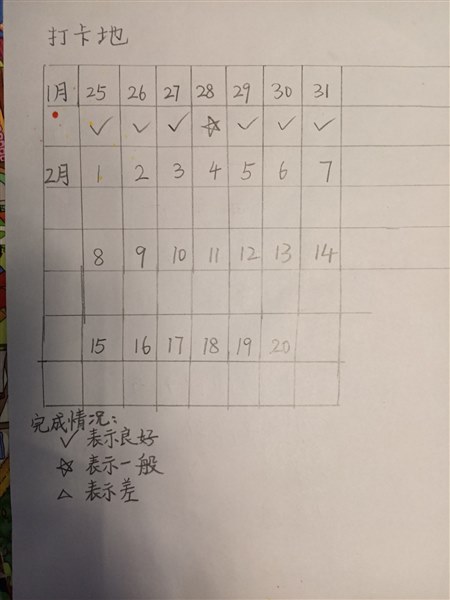 打卡地
1月 25 26 27 28 29 30 31
✓ ✓ ✓ ☆ ✓ ✓ ✓
2月 1 2 3 4 5 6 7
8 9 10 11 12 13 14
15 16 17 18 19 20
完成情况：
✓ 表示良好
☆ 表示一般
△ 表示差